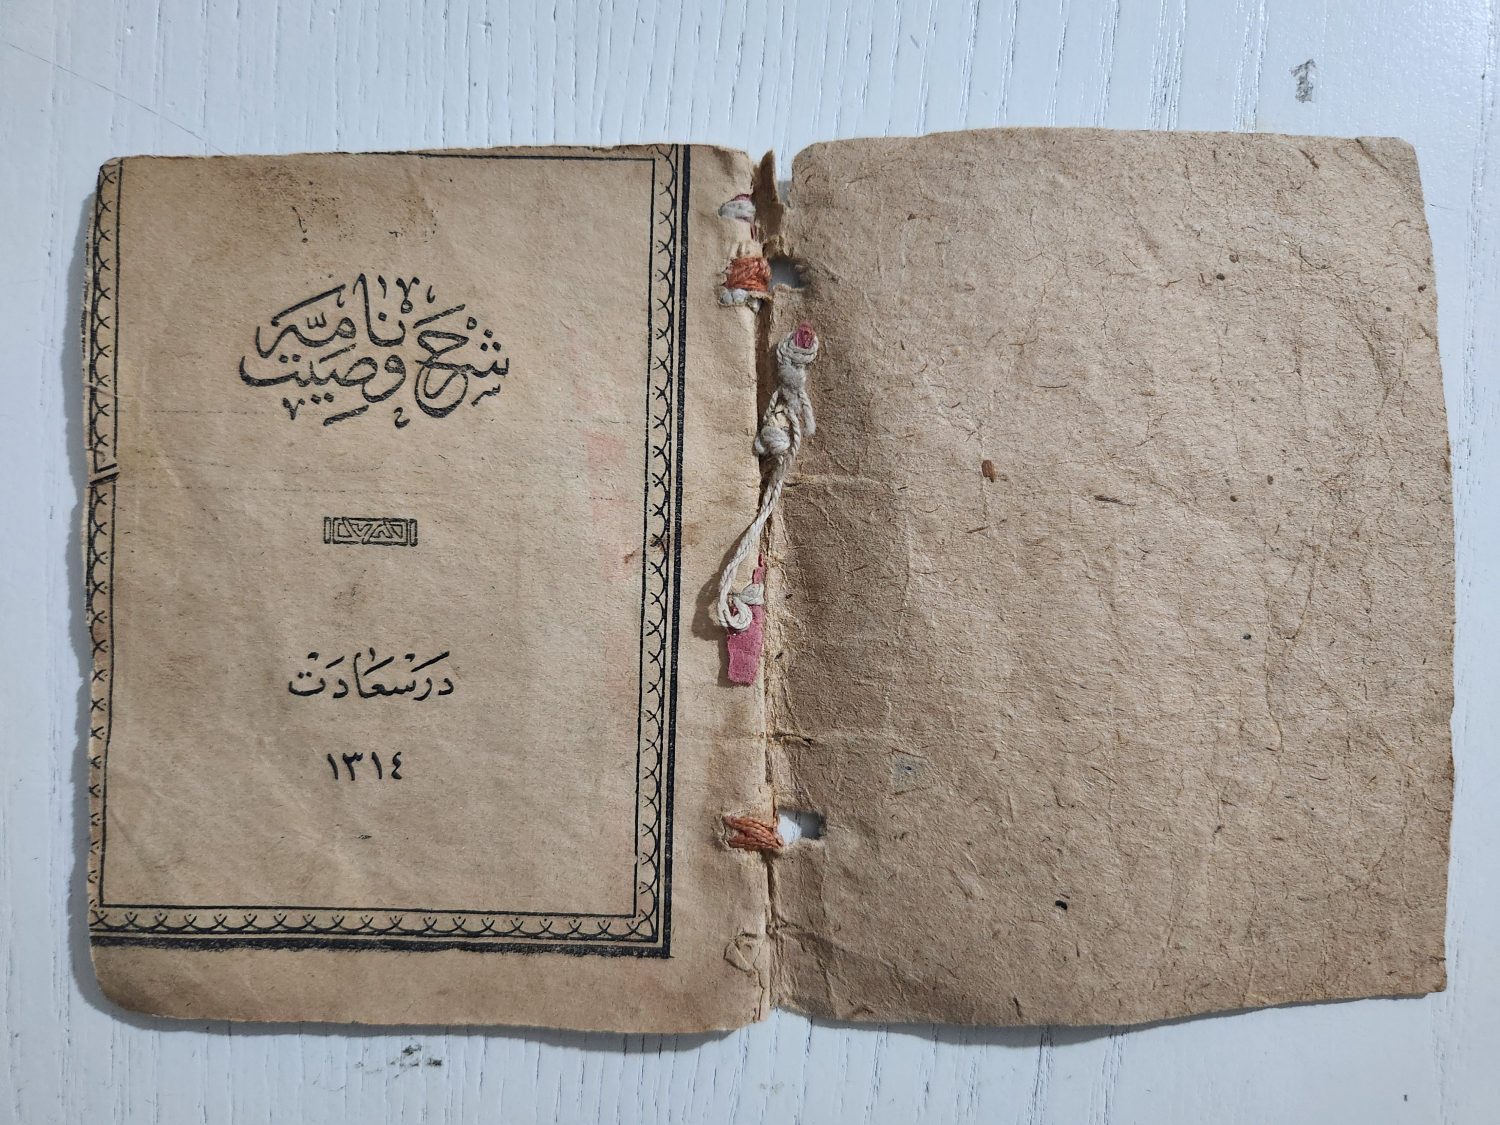 شرح وصيت نامه
درسعادت
١٣١٤